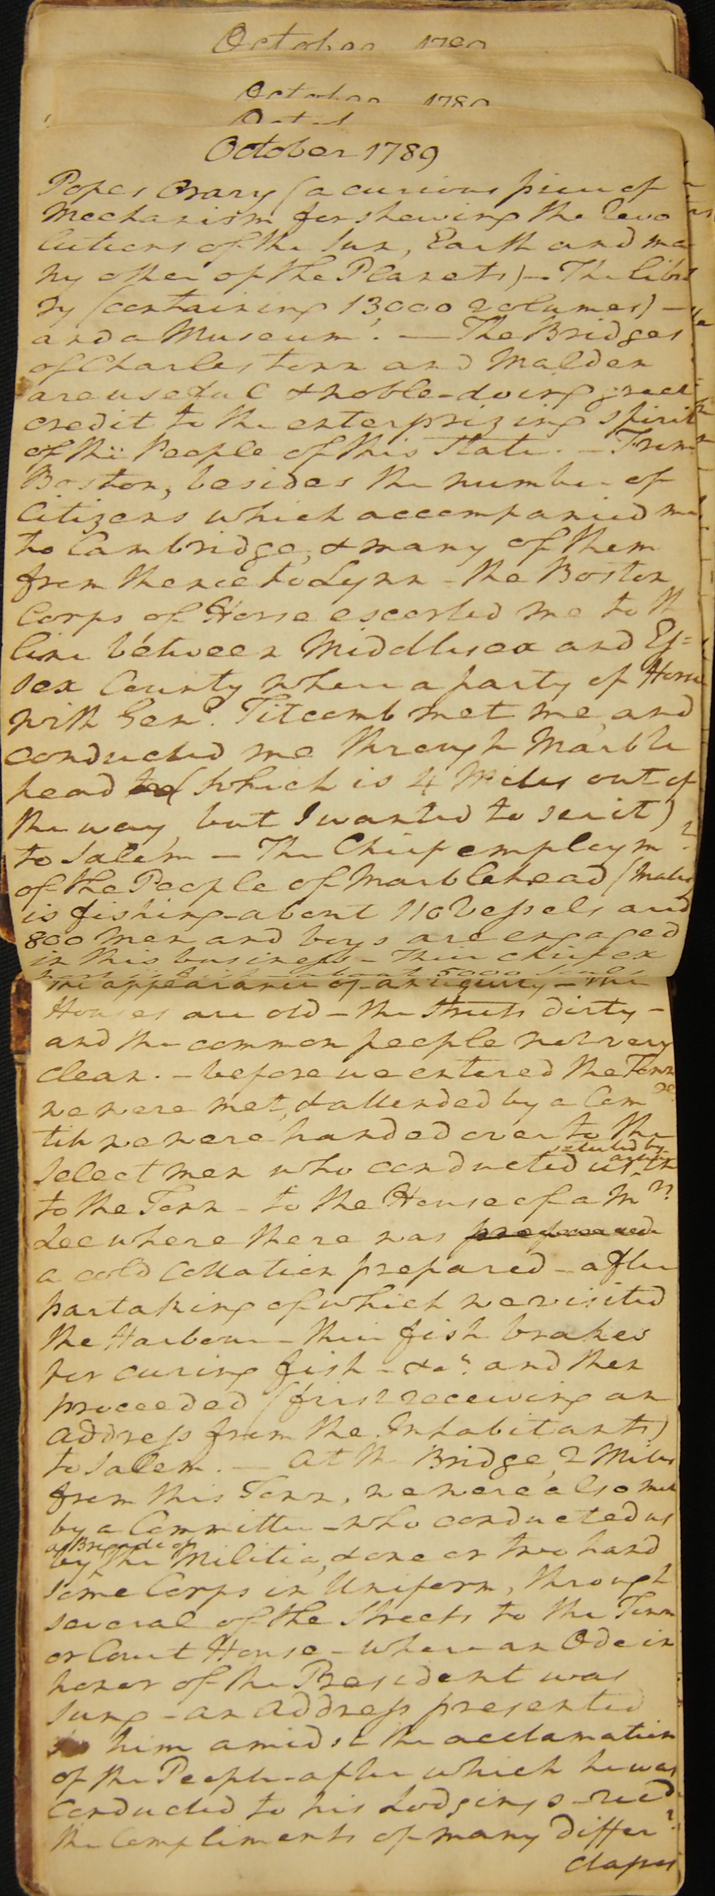 October 1789
October 1789
Octob
October 1789
Popes Orary (a curious piece of
Mechanism for shewing the revo
lutions of the Sun, Earth and ma
ny other of the Planets)—The libra
ry (containing 13000 volumes)—
and a Museum. — The Bridges
of Charles town and Malden
are useful & noble—doing great
credit to the enterprizing spirit
of the People of this State. — From
Boston, besides the number of
Citizens which accompanied me
to Cambridge, & many of them
from thence to Lynn—the Boston
Corps of Horse escorted me to the
line between Middlesex and Es=
sex County where a party of Horse
with Genl. Titcomb met me, and
conducted me through Marble
head (which is 4 Miles out of
the way, but I wanted to see it)
to Salem — The Chief employmt
of the People of Marblehead (Males)
is fishing—about 110 Vessels and
800 Men and boys are engaged
in this business—Their chief ex
the appearance of antiquity—the
Houses are old—the streets dirty—
and the common people not very
clean. — before we entered the Town
we were met, & attended by a Comee.
till we were handed over to the
Select men who conducted us saluted by artily
to the Town—to the House of a Mrs.
Lee where there was
a cold Collation prepared—after
partaking of which we visited
the Harbour—their fish brakes
for curing fish—&ca. and then
proceeded (first receiving an
Address from the Inhabitants)
to Salem. — At the Bridge, 2 Miles
from this Town, we were also met
by a Committee—who conducted us
by a Brigade of the Militia, & one or two hand
some Corps in Uniform, through
several of the Streets to the Town
or Court House—where an Ode in
honor of the President was
sung—an Address presented
to him amidst the acclamations
of the People—after which he was
conducted to his Lodgings—recd.
the Compliments of many differt.
classes